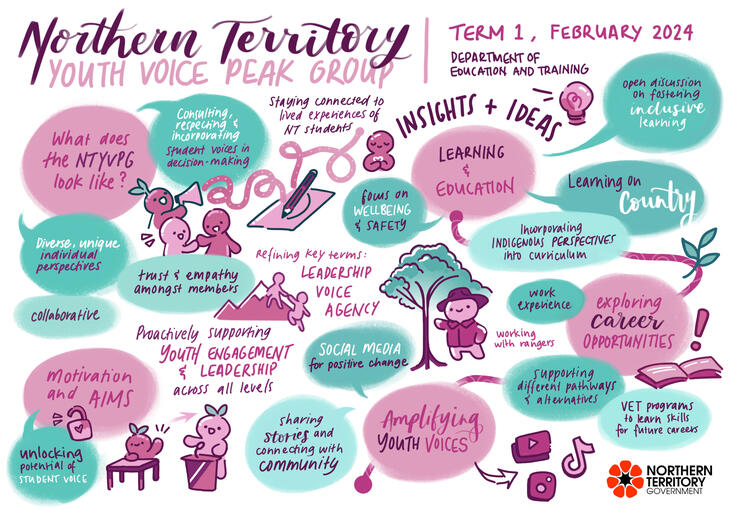 Northern Territory
YOUTH VOICE PEAK GROUP
TERM 1, FEBRUARY 2024
DEPARTMENT OF
EDUCATION AND TRAINING
What does
the NTYVPG
look like?
Consulting,
respecting &
incorporating
student voices in
decision-making
Staying connected to
lived experiences of
NT students
Diverse, unique
individual
perspectives
collaborative
trust & empathy
amongst members
Refining key terms:
LEADERSHIP
VOICE
AGENCY
Proactively supporting
YOUTH ENGAGEMENT
& LEADERSHIP
across all levels
Motivation
and AIMS
unlocking
potential of
STUDENT VOICE
INSIGHTS + IDEAS
LEARNING
&
EDUCATION
open discussion
on fostering
inclusive
learning
Learning on
Country
focus on
WELLBEING
& SAFETY
Incorporating
INDIGENOUS PERSPECTIVES
into curriculum
exploring
career
OPPORTUNITIES
work
experience
working
with rangers
supporting
different pathways
& alternatives
VET programs
to learn skills
for future careers
Amplifying
YOUTH VOICES
SOCIAL MEDIA
for positive change
sharing
stories and
connecting with
community
NORTHERN
TERRITORY
GOVERNMENT